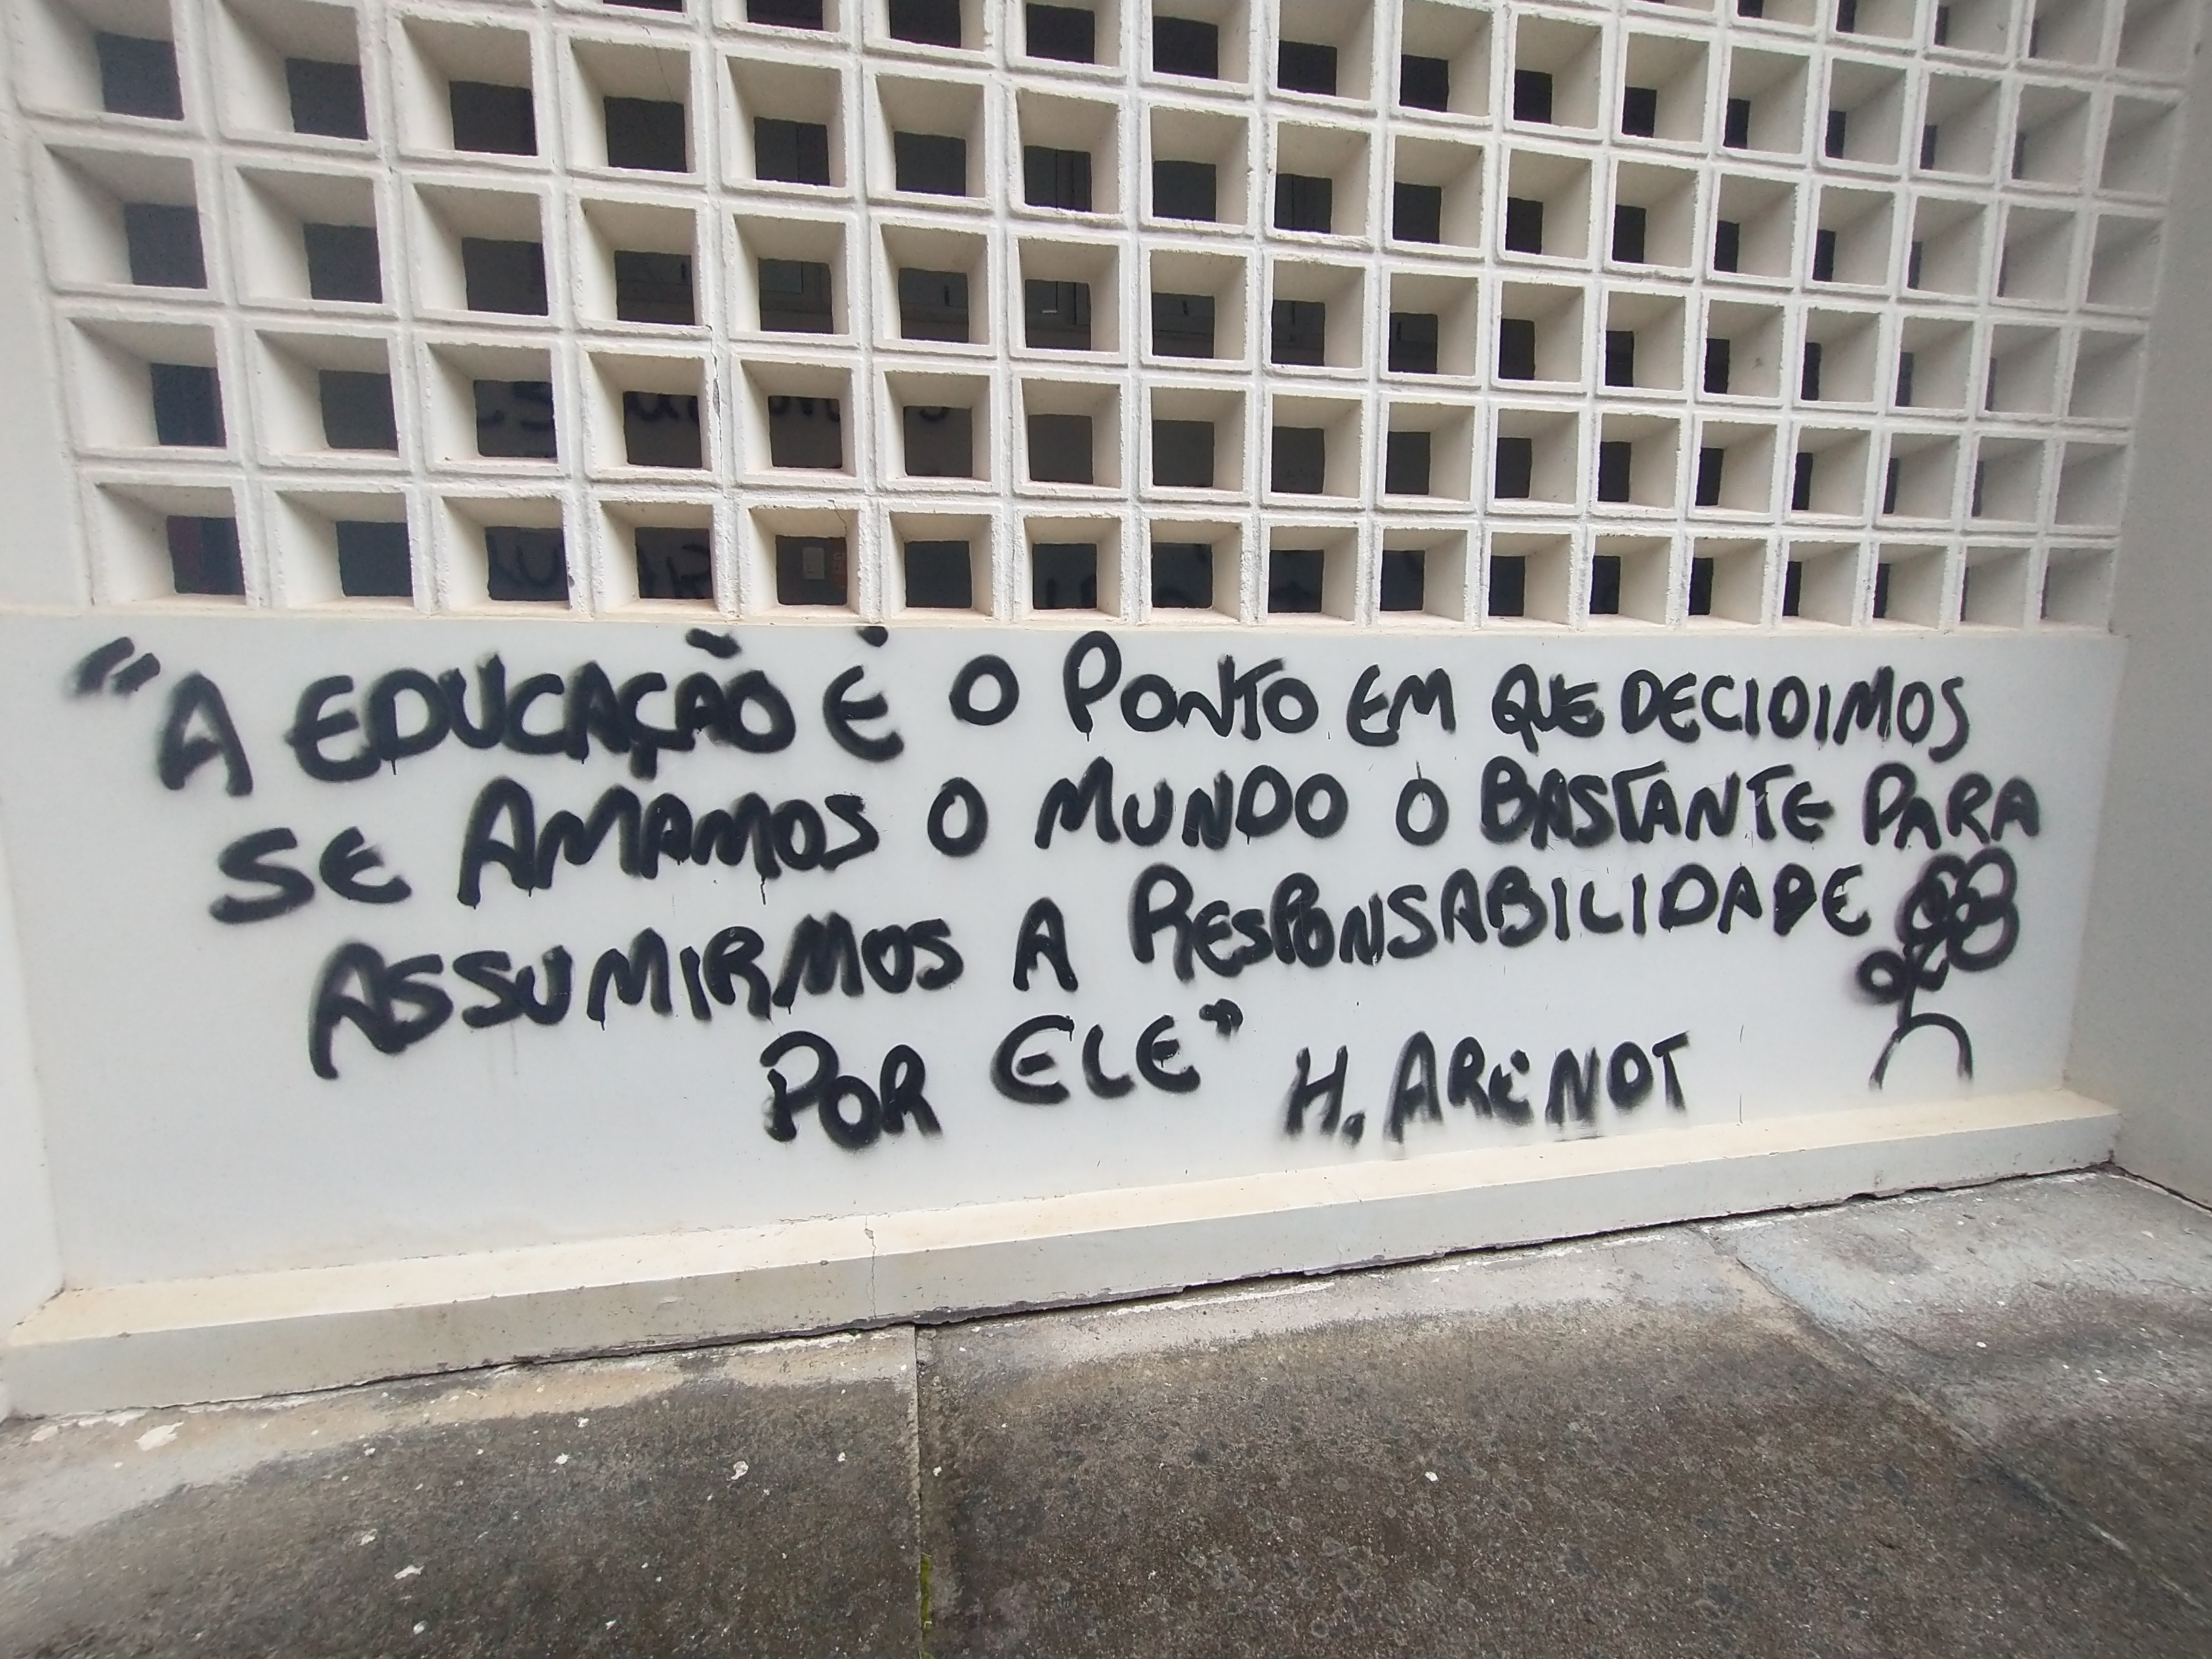 "A EDUCAÇÃO É O PONTO EM QUE DECIDIMOS
SE AMAMOS O MUNDO O BASTANTE PARA
ASSUMIRMOS A RESPONSABILIDADE
POR ELE" H. ARENDT